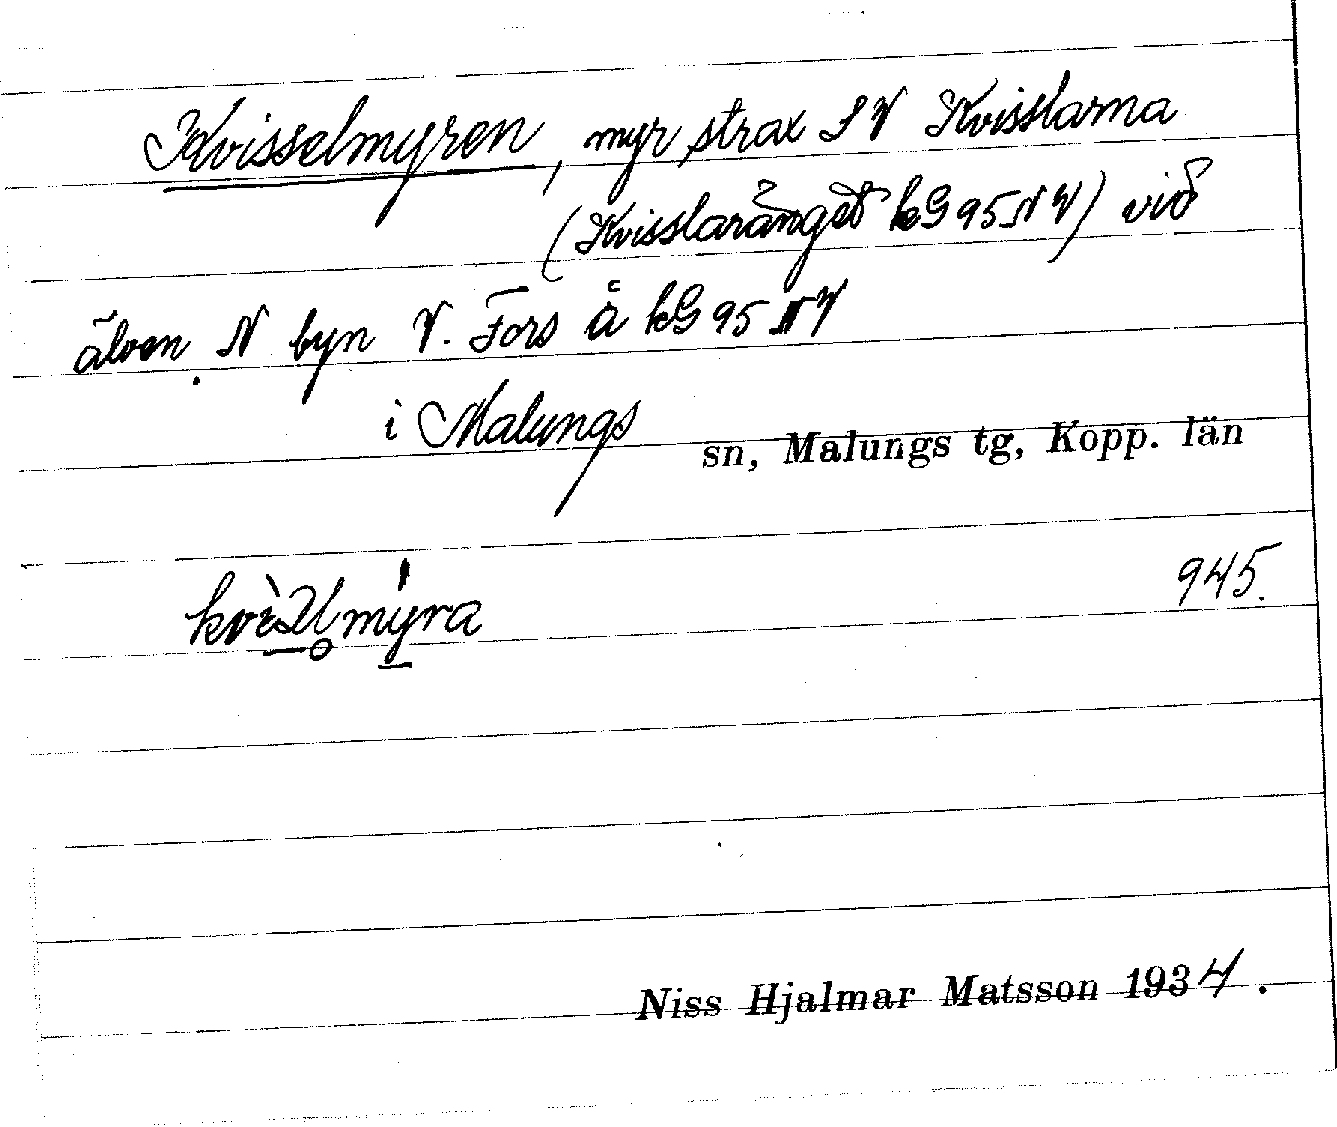 Kvisselmyren, myr strax SV Kvisslarna
(Kvisslaränget kG 95 NV) vid
älven. N byn V. Fors å kG 95 NV
i Malungs sn, Malungs tg, Kopp. län
945.
Niss Hjalmar Matsson 1934.